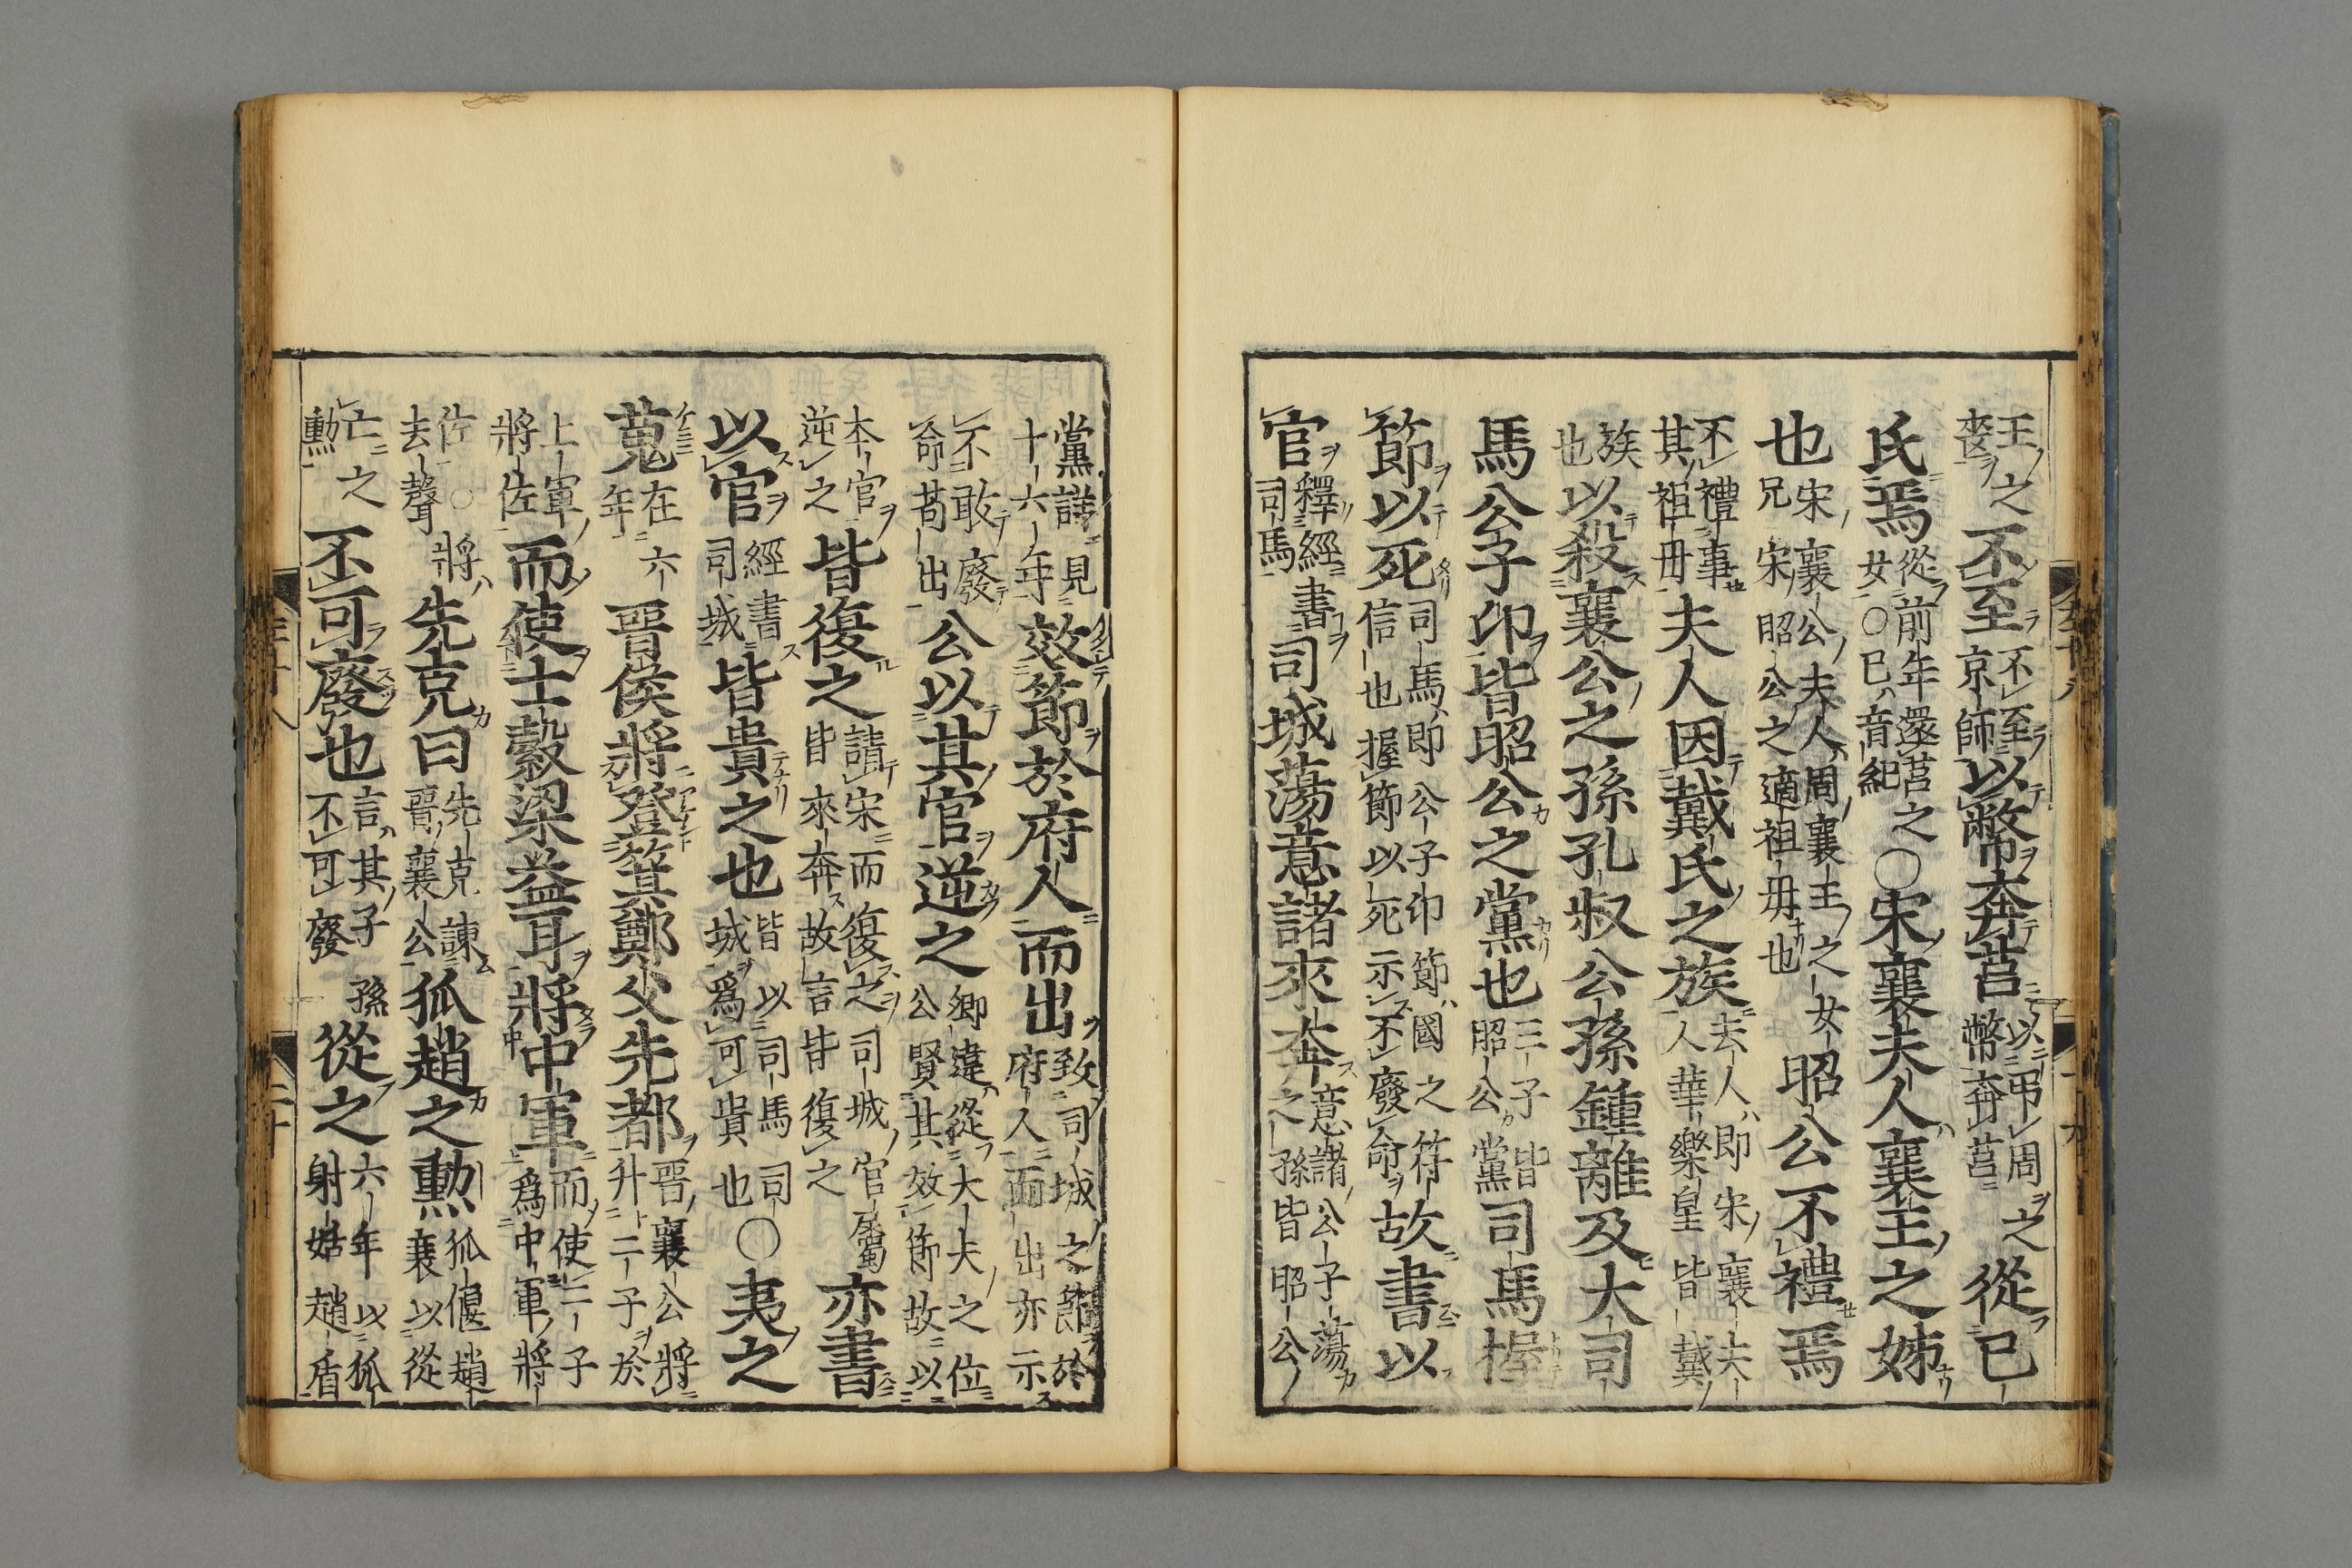 王之喪不至不至京師以幣奔莒以吊周之幣奔莒從己
氏焉從前年還莒之女○己音紀○宋襄夫人襄王之姊
也宋襄公夫人周襄王之女兄宋昭公之適祖母也昭公不禮焉
不禮事其祖母夫人因戴氏之族夫人即宋襄夫人華樂皇皆戴
族也以殺襄公之孫孔叔公孫鍾離及大司
馬公子卬皆昭公之黨也三子皆昭公黨司馬握
節以死司馬即公子卬節國之符信也握節以死示不廢命故書以
官釋經書司馬司城蕩意諸來奔意諸公子蕩之孫皆昭公
黨詳見十六年效節於府人而出致司城之節於府人而出亦示
不敢廢命苟出公以其官逆之卿違從大夫之位公賢其效節故以
本官逆之皆復之請宋而復之司城官屬皆來奔故言皆復之亦書
以官經書司城皆貴之也皆以司馬司城爲可貴也○夷之
蒐在六年晉侯將登箕鄭父先都晉襄公將升二子於
上軍將佐而使士縠梁益耳將中軍而使二子爲中軍將
佐○將去聲先克曰先克諫晉襄公狐趙之勲狐偃趙衰以從
亡之勲不可廢也言其子孫不可廢從之六年以狐射姑趙盾